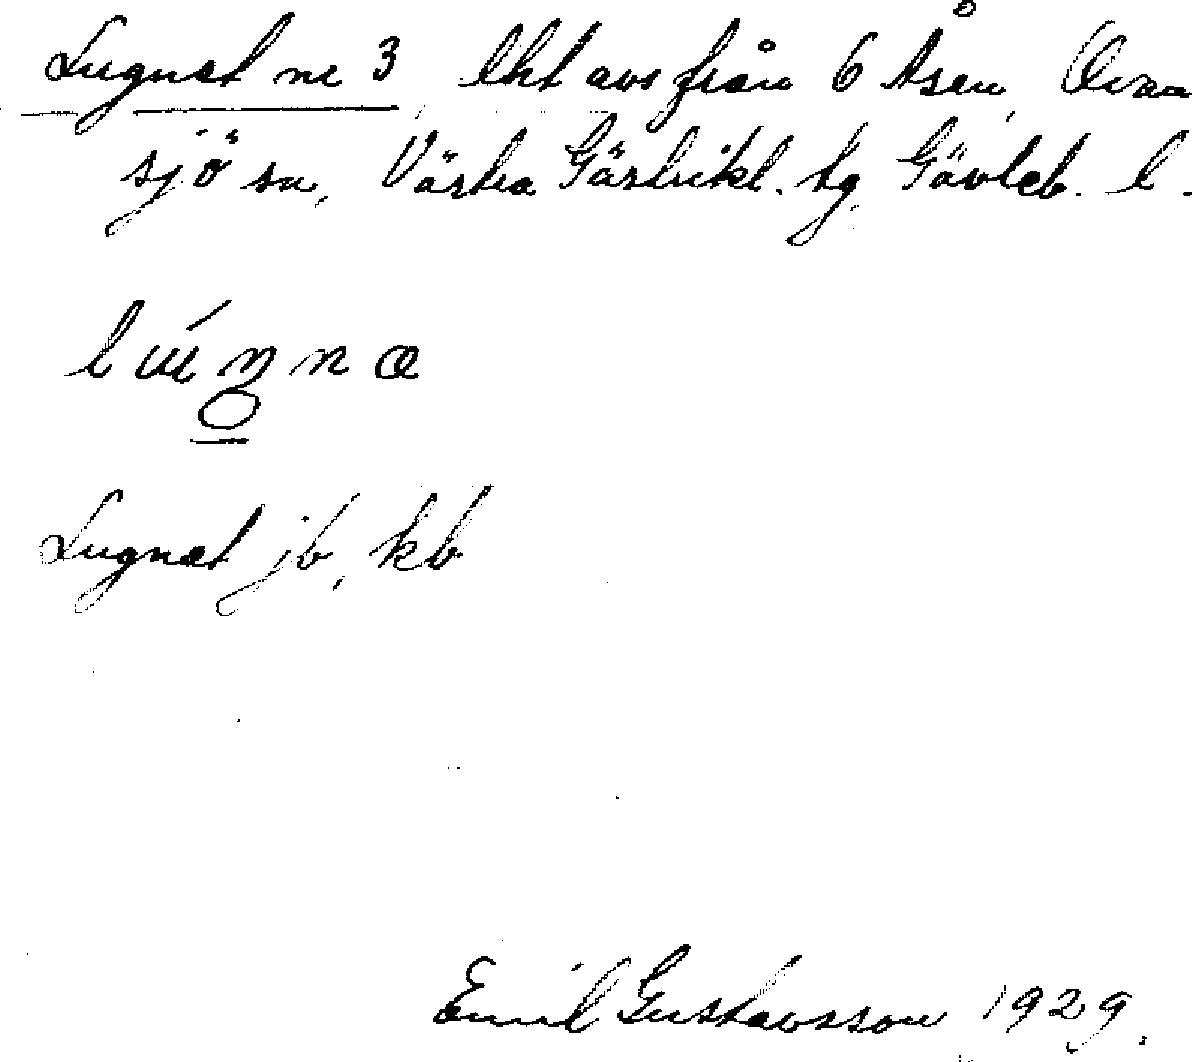 Lugnet nr 3, lht avs från 6 Åsen, Ovan
sjö sn, Västra Gästrikl. tg, Gävleb. l.
Lugnet jb, kb
Emil Gustavsson 1929.